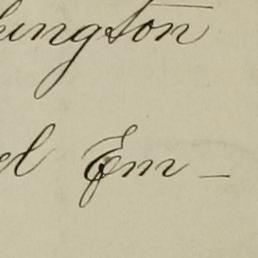 hington
el Em-